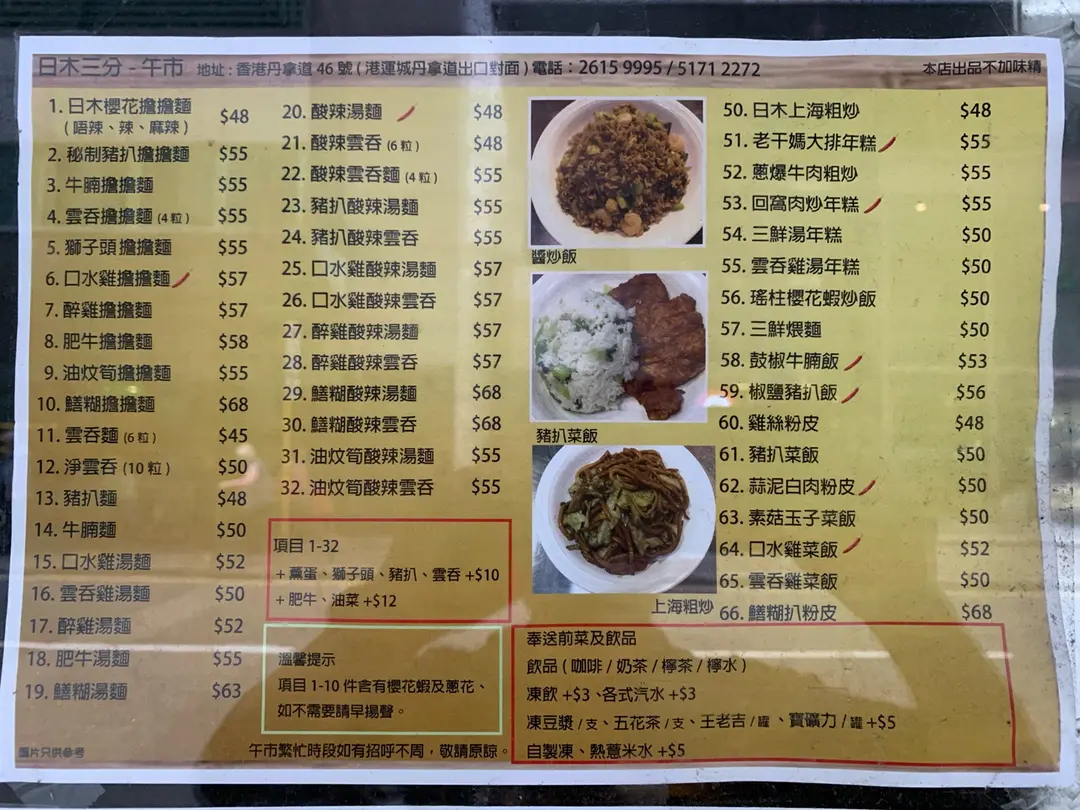 日木三分 - 午市 地址 : 香港丹拿道 46 號 ( 港運城丹拿道出口對面 ) 電話 : 2615 9995 / 5171 2272 本店出品不加味精
1. 日木櫻花擔擔麵 $48
( 唔辣、辣、麻辣 )
2. 秘制豬扒擔擔麵 $55
3. 牛腩擔擔麵 $55
4. 雲吞擔擔麵 (4 粒 ) $55
5. 獅子頭擔擔麵 $55
6. 口水雞擔擔麵 $57
7. 醉雞擔擔麵 $57
8. 肥牛擔擔麵 $58
9. 油炆筍擔擔麵 $55
10. 鱔糊擔擔麵 $68
11. 雲吞麵 (6 粒 ) $45
12. 淨雲吞 (10 粒 ) $50
13. 豬扒麵 $48
14. 牛腩麵 $50
15. 口水雞湯麵 $52
16. 雲吞雞湯麵 $50
17. 醉雞湯麵 $52
18. 肥牛湯麵 $55
19. 鱔糊湯麵 $63
圖片只供參考
20. 酸辣湯麵 $48
21. 酸辣雲吞 (6 粒 ) $48
22. 酸辣雲吞麵 (4 粒 ) $55
23. 豬扒酸辣湯麵 $55
24. 豬扒酸辣雲吞 $55
25. 口水雞酸辣湯麵 $57
26. 口水雞酸辣雲吞 $57
27. 醉雞酸辣湯麵 $57
28. 醉雞酸辣雲吞 $57
29. 鱔糊酸辣湯麵 $68
30. 鱔糊酸辣雲吞 $68
31. 油炆筍酸辣湯麵 $55
32. 油炆筍酸辣雲吞 $55
項目 1-32
+ 薰蛋、獅子頭、豬扒、雲吞 +$10
+ 肥牛、油菜 +$12
溫馨提示
項目 1-10 件含有櫻花蝦及蔥花、
如不需要請早揚聲。
午市繁忙時段如有招呼不周，敬請原諒。
醬炒飯
豬扒菜飯
上海粗炒
50. 日木上海粗炒 $48
51. 老干媽大排年糕 $55
52. 蔥爆牛肉粗炒 $55
53. 回窩肉炒年糕 $55
54. 三鮮湯年糕 $50
55. 雲吞雞湯年糕 $50
56. 瑤柱櫻花蝦炒飯 $50
57. 三鮮煨麵 $50
58. 鼓椒牛腩飯 $53
59. 椒鹽豬扒飯 $56
60. 雞絲粉皮 $48
61. 豬扒菜飯 $50
62. 蒜泥白肉粉皮 $50
63. 素菇玉子菜飯 $50
64. 口水雞菜飯 $52
65. 雲吞雞菜飯 $50
66. 鱔糊扒粉皮 $68
奉送前菜及飲品
飲品 ( 咖啡 / 奶茶 / 檸茶 / 檸水 )
凍飲 +$3 、各式汽水 +$3
凍豆漿 / 支 、五花茶 / 支、王老吉 / 罐 、寶礦力 / 罐 +$5
自製凍、熱薏米水 +$5